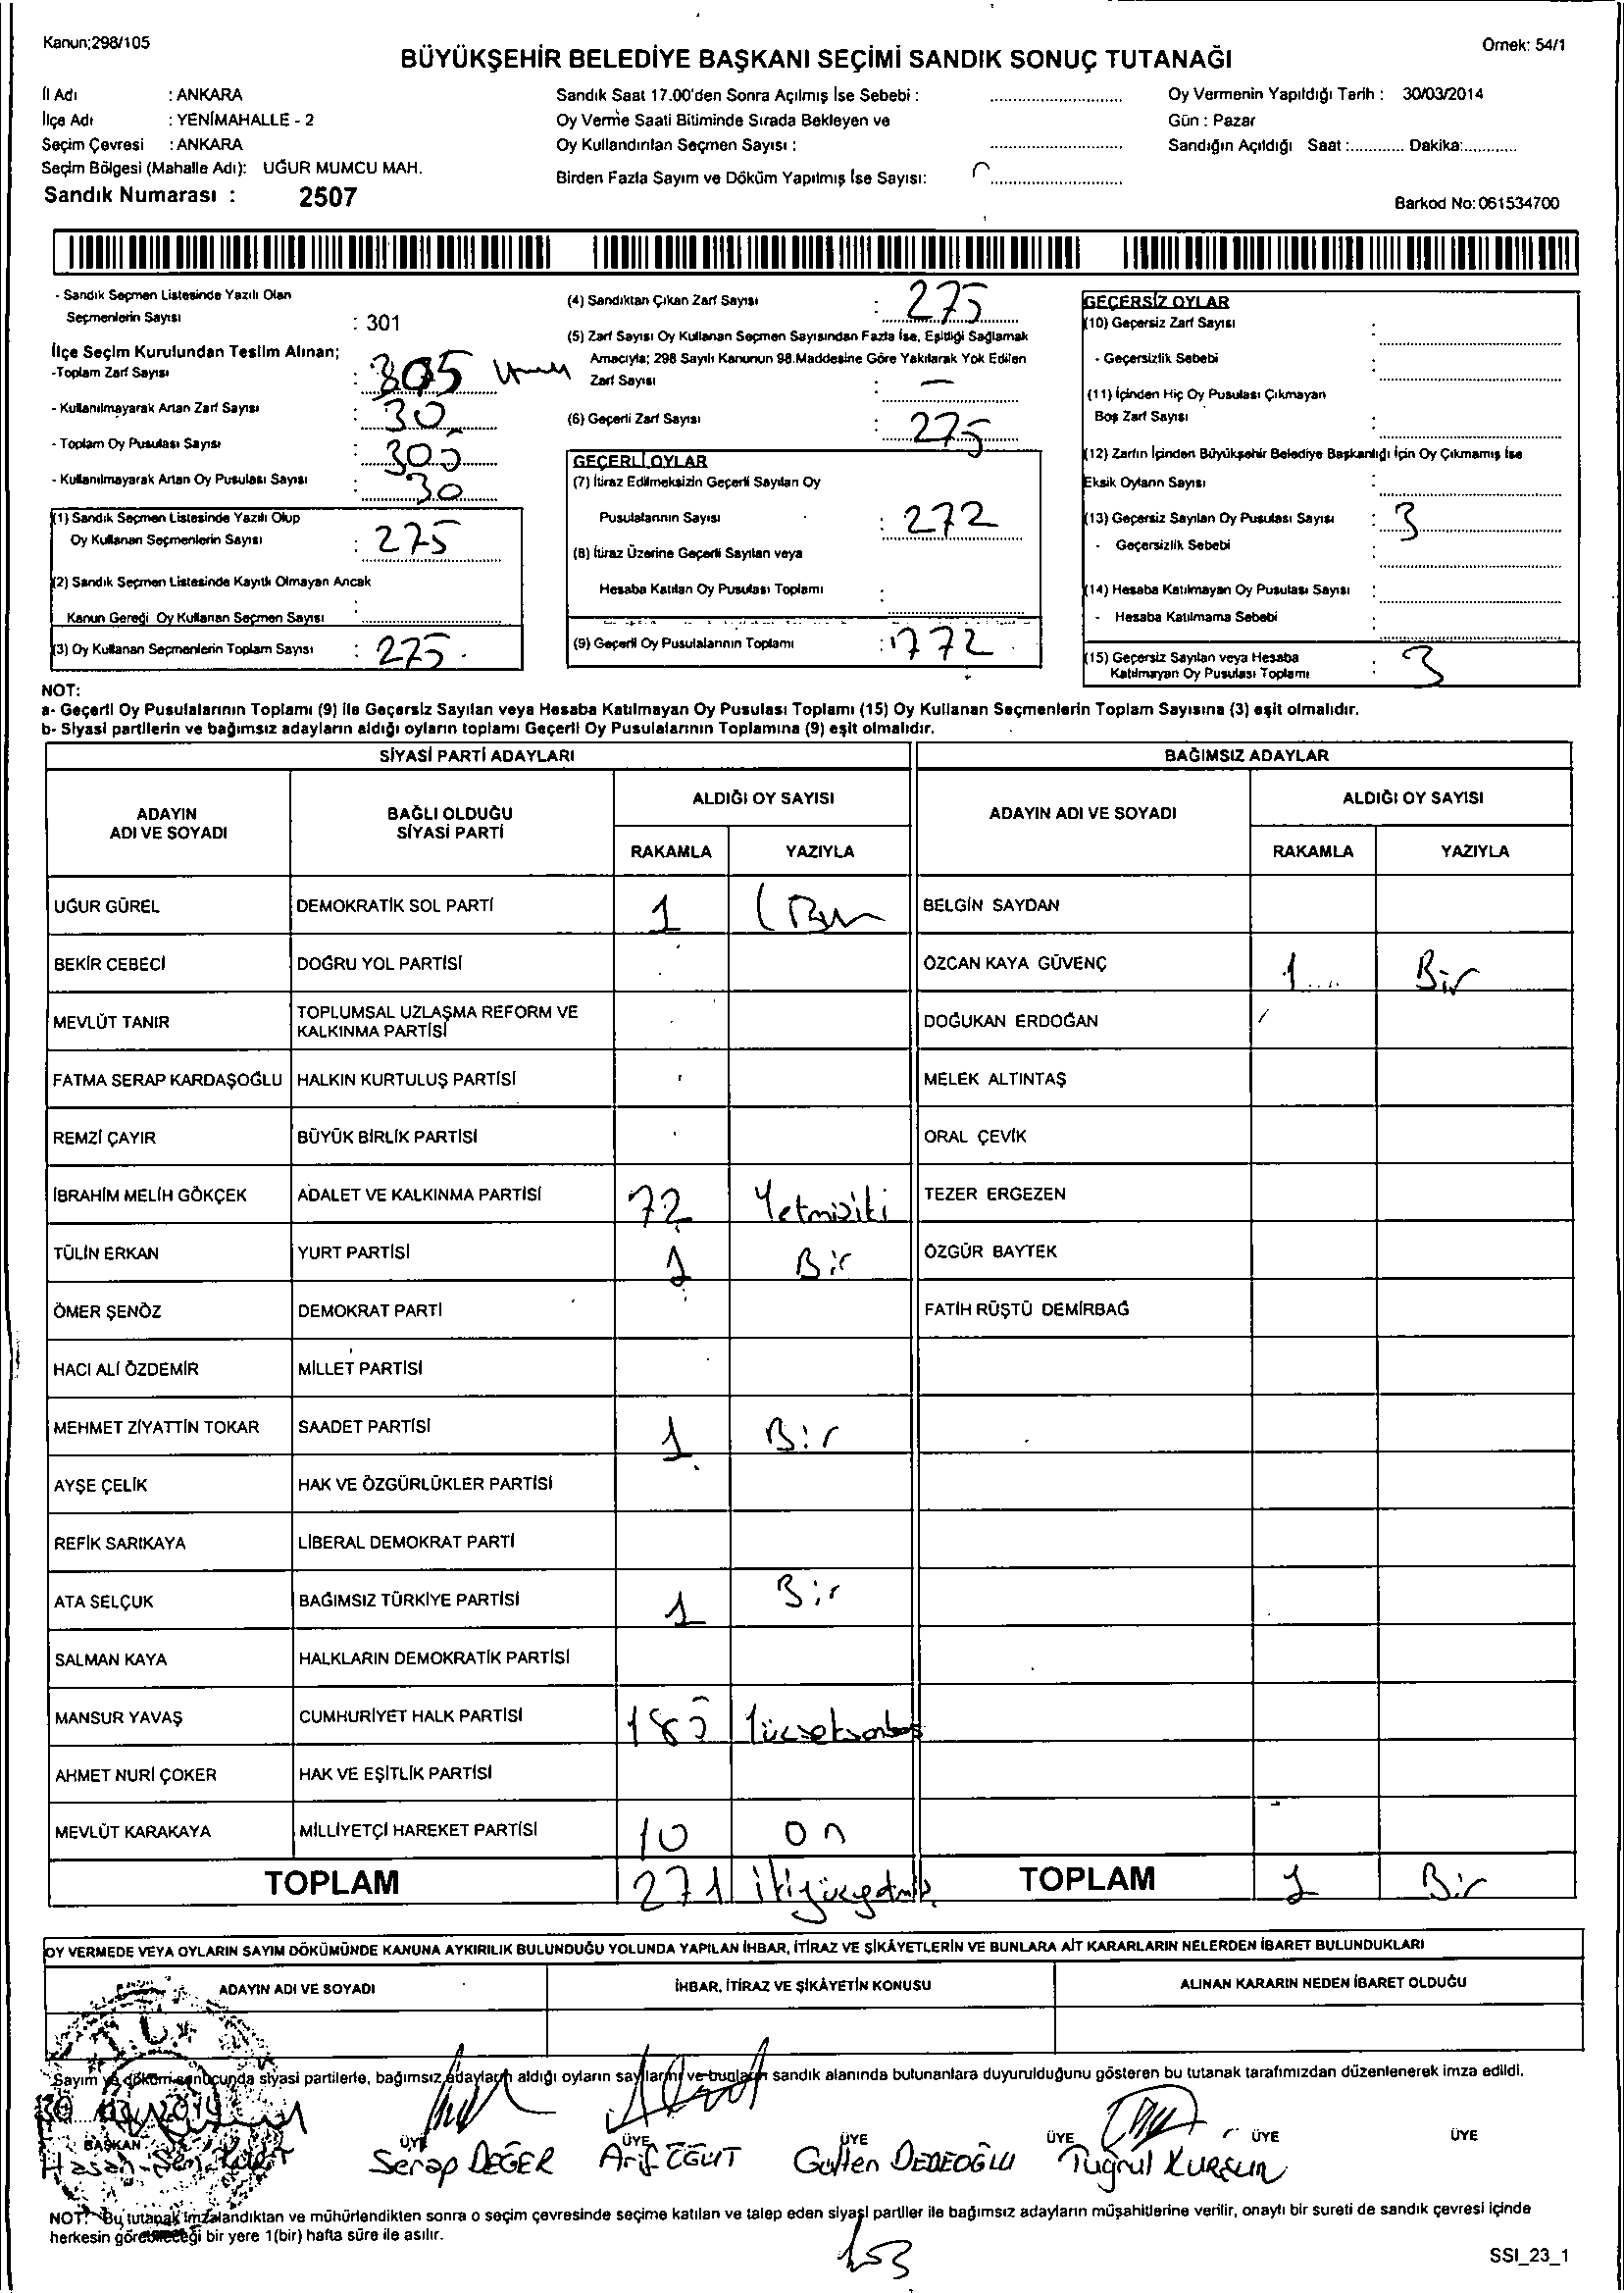 Kanun;298/105
Örnek: 54/1
BÜYÜKŞEHİR BELEDİYE BAŞKANI SEÇİMİ SANDIK SONUÇ TUTANAĞI
İl Adı : ANKARA
İlçe Adı : YENİMAHALLE - 2
Seçim Çevresi : ANKARA
Seçim Bölgesi (Mahalle Adı): UĞUR MUMCU MAH.
Sandık Numarası : 2507
Sandık Saat 17.00'den Sonra Açılmış İse Sebebi :
Oy Verme Saati Bitiminde Sırada Bekleyen ve
Oy Kullandırılan Seçmen Sayısı :
Birden Fazla Sayım ve Döküm Yapılmış İse Sayısı:
Oy Vermenin Yapıldığı Tarih : 30/03/2014
Gün : Pazar
Sandığın Açıldığı Saat :............ Dakika:............
Barkod No: 061534700
- Sandık Seçmen Listesinde Yazılı Olan
Seçmenlerin Sayısı : 301
İlçe Seçim Kurulundan Teslim Alınan;
-Toplam Zarf Sayısı : 305
- Kullanılmayarak Artan Zarf Sayısı : 30
- Toplam Oy Pusulası Sayısı : 305
- Kullanılmayarak Artan Oy Pusulası Sayısı : 30
(1) Sandık Seçmen Listesinde Yazılı Olup
Oy Kullanan Seçmenlerin Sayısı : 275
(2) Sandık Seçmen Listesinde Kayıtlı Olmayan Ancak
Kanun Gereği Oy Kullanan Seçmen Sayısı :
(3) Oy Kullanan Seçmenlerin Toplam Sayısı : 275
(4) Sandıktan Çıkan Zarf Sayısı : 275
(5) Zarf Sayısı Oy Kullanan Seçmen Sayısından Fazla İse, Eşitliği Sağlamak
Amacıyla; 298 Sayılı Kanunun 98.Maddesine Göre Yakılarak Yok Edilen
Zarf Sayısı : —
(6) Geçerli Zarf Sayısı : 275
GEÇERLİ OYLAR
(7) İtiraz Edilmeksizin Geçerli Sayılan Oy
Pusulalarının Sayısı : 272
(8) İtiraz Üzerine Geçerli Sayılan veya
Hesaba Katılan Oy Pusulası Toplamı :
(9) Geçerli Oy Pusulalarının Toplamı : 272
GEÇERSİZ OYLAR
(10) Geçersiz Zarf Sayısı :
- Geçersizlik Sebebi :
(11) İçinden Hiç Oy Pusulası Çıkmayan
Boş Zarf Sayısı :
(12) Zarfın İçinden Büyükşehir Belediye Başkanlığı İçin Oy Çıkmamış İse
Eksik Oyların Sayısı :
(13) Geçersiz Sayılan Oy Pusulası Sayısı : 3
- Geçersizlik Sebebi :
(14) Hesaba Katılmayan Oy Pusulası Sayısı :
- Hesaba Katılmama Sebebi :
(15) Geçersiz Sayılan veya Hesaba
Katılmayan Oy Pusulası Toplamı : 3
NOT:
a- Geçerli Oy Pusulalarının Toplamı (9) ile Geçersiz Sayılan veya Hesaba Katılmayan Oy Pusulası Toplamı (15) Oy Kullanan Seçmenlerin Toplam Sayısına (3) eşit olmalıdır.
b- Siyasi partilerin ve bağımsız adayların aldığı oyların toplamı Geçerli Oy Pusulalarının Toplamına (9) eşit olmalıdır.
SİYASİ PARTİ ADAYLARI BAĞIMSIZ ADAYLAR
ADAYIN ADI VE SOYADI BAĞLI OLDUĞU SİYASİ PARTİ ALDIĞI OY SAYISI ADAYIN ADI VE SOYADI ALDIĞI OY SAYISI
RAKAMLA YAZIYLA RAKAMLA YAZIYLA
UĞUR GÜREL DEMOKRATİK SOL PARTİ 1 Bir BELGİN SAYDAN
BEKİR CEBECİ DOĞRU YOL PARTİSİ ÖZCAN KAYA GÜVENÇ 1 Bir
MEVLÜT TANIR TOPLUMSAL UZLAŞMA REFORM VE KALKINMA PARTİSİ DOĞUKAN ERDOĞAN
FATMA SERAP KARDAŞOĞLU HALKIN KURTULUŞ PARTİSİ MELEK ALTINTAŞ
REMZİ ÇAYIR BÜYÜK BİRLİK PARTİSİ ORAL ÇEVİK
İBRAHİM MELİH GÖKÇEK ADALET VE KALKINMA PARTİSİ 72 Yetmişiki TEZER ERGEZEN
TÜLİN ERKAN YURT PARTİSİ 1 Bir ÖZGÜR BAYTEK
ÖMER ŞENÖZ DEMOKRAT PARTİ FATİH RÜŞTÜ DEMİRBAĞ
HACI ALİ ÖZDEMİR MİLLET PARTİSİ
MEHMET ZİYATTİN TOKAR SAADET PARTİSİ 1 Bir
AYŞE ÇELİK HAK VE ÖZGÜRLÜKLER PARTİSİ
REFİK SARIKAYA LİBERAL DEMOKRAT PARTİ
ATA SELÇUK BAĞIMSIZ TÜRKİYE PARTİSİ 1 Bir
SALMAN KAYA HALKLARIN DEMOKRATİK PARTİSİ
MANSUR YAVAŞ CUMHURİYET HALK PARTİSİ 185 Yüzseksenbeş
AHMET NURİ ÇOKER HAK VE EŞİTLİK PARTİSİ
MEVLÜT KARAKAYA MİLLİYETÇİ HAREKET PARTİSİ 10 On
TOPLAM 271 TOPLAM 1 Bir
OY VERMEDE VEYA OYLARIN SAYIM DÖKÜMÜNDE KANUNA AYKIRILIK BULUNDUĞU YOLUNDA YAPILAN İHBAR, İTİRAZ VE ŞİKÂYETLERİN VE BUNLARA AİT KARARLARIN NELERDEN İBARET BULUNDUKLARI
ADAYIN ADI VE SOYADI İHBAR, İTİRAZ VE ŞİKÂYETİN KONUSU ALINAN KARARIN NEDEN İBARET OLDUĞU
T.C.
Sayım ve döküm sonucunda siyasi partilerle, bağımsız adayların aldığı oyların sayılarını ve bunların sandık alanında bulunanlara duyurulduğunu gösteren bu tutanak tarafımızdan düzenlenerek imza edildi.
30 03 2014
BAŞKAN ÜYE ÜYE ÜYE ÜYE ÜYE ÜYE
Hasan Serap DEĞER Arif Gülten DEDEOĞLU Tuğrul KURŞUN
NOT: Bu tutanak imzalandıktan ve mühürlendikten sonra o seçim çevresinde seçime katılan ve talep eden siyasi partiler ile bağımsız adayların müşahitlerine verilir, onaylı bir sureti de sandık çevresi içinde
herkesin görebileceği bir yere 1(bir) hafta süre ile asılır.
153
SSI_23_1